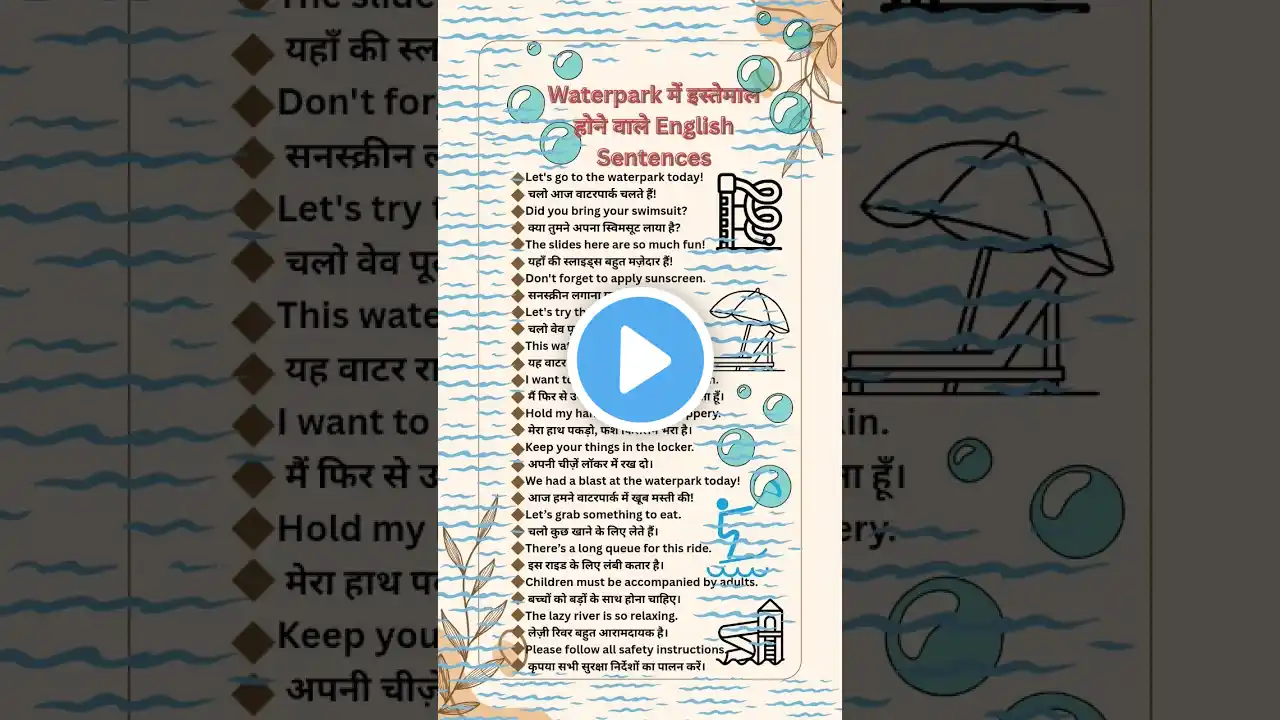 Waterpark में इस्तेमाल
होने वाले English
Sentences
Let's go to the waterpark today!
चलो आज वाटरपार्क चलते हैं!
Did you bring your swimsuit?
क्या तुमने अपना स्विमसूट लाया है?
The slides here are so much fun!
यहाँ की स्लाइड्स बहुत मज़ेदार हैं!
Don't forget to apply sunscreen.
सनस्क्रीन लगाना
Let's try
चलो वेव
This
यह वाटर
I want to
मैं फिर से हूँ।
Hold my
मेरा हाथ पकड़ो, फर्श भरा है।
Keep your things in the locker.
अपनी चीज़ें लॉकर में रख दो।
We had a blast at the waterpark today!
आज हमने वाटरपार्क में खूब मस्ती की!
Let's grab something to eat.
चलो कुछ खाने के लिए लेते हैं।
There's a long queue for this ride.
इस राइड के लिए लंबी कतार है।
Children must be accompanied by adults.
बच्चों को बड़ों के साथ होना चाहिए।
The lazy river is so relaxing.
लेज़ी रिवर बहुत आरामदायक है।
Please follow all safety instructions.
कृपया सभी सुरक्षा निर्देशों का पालन करें।